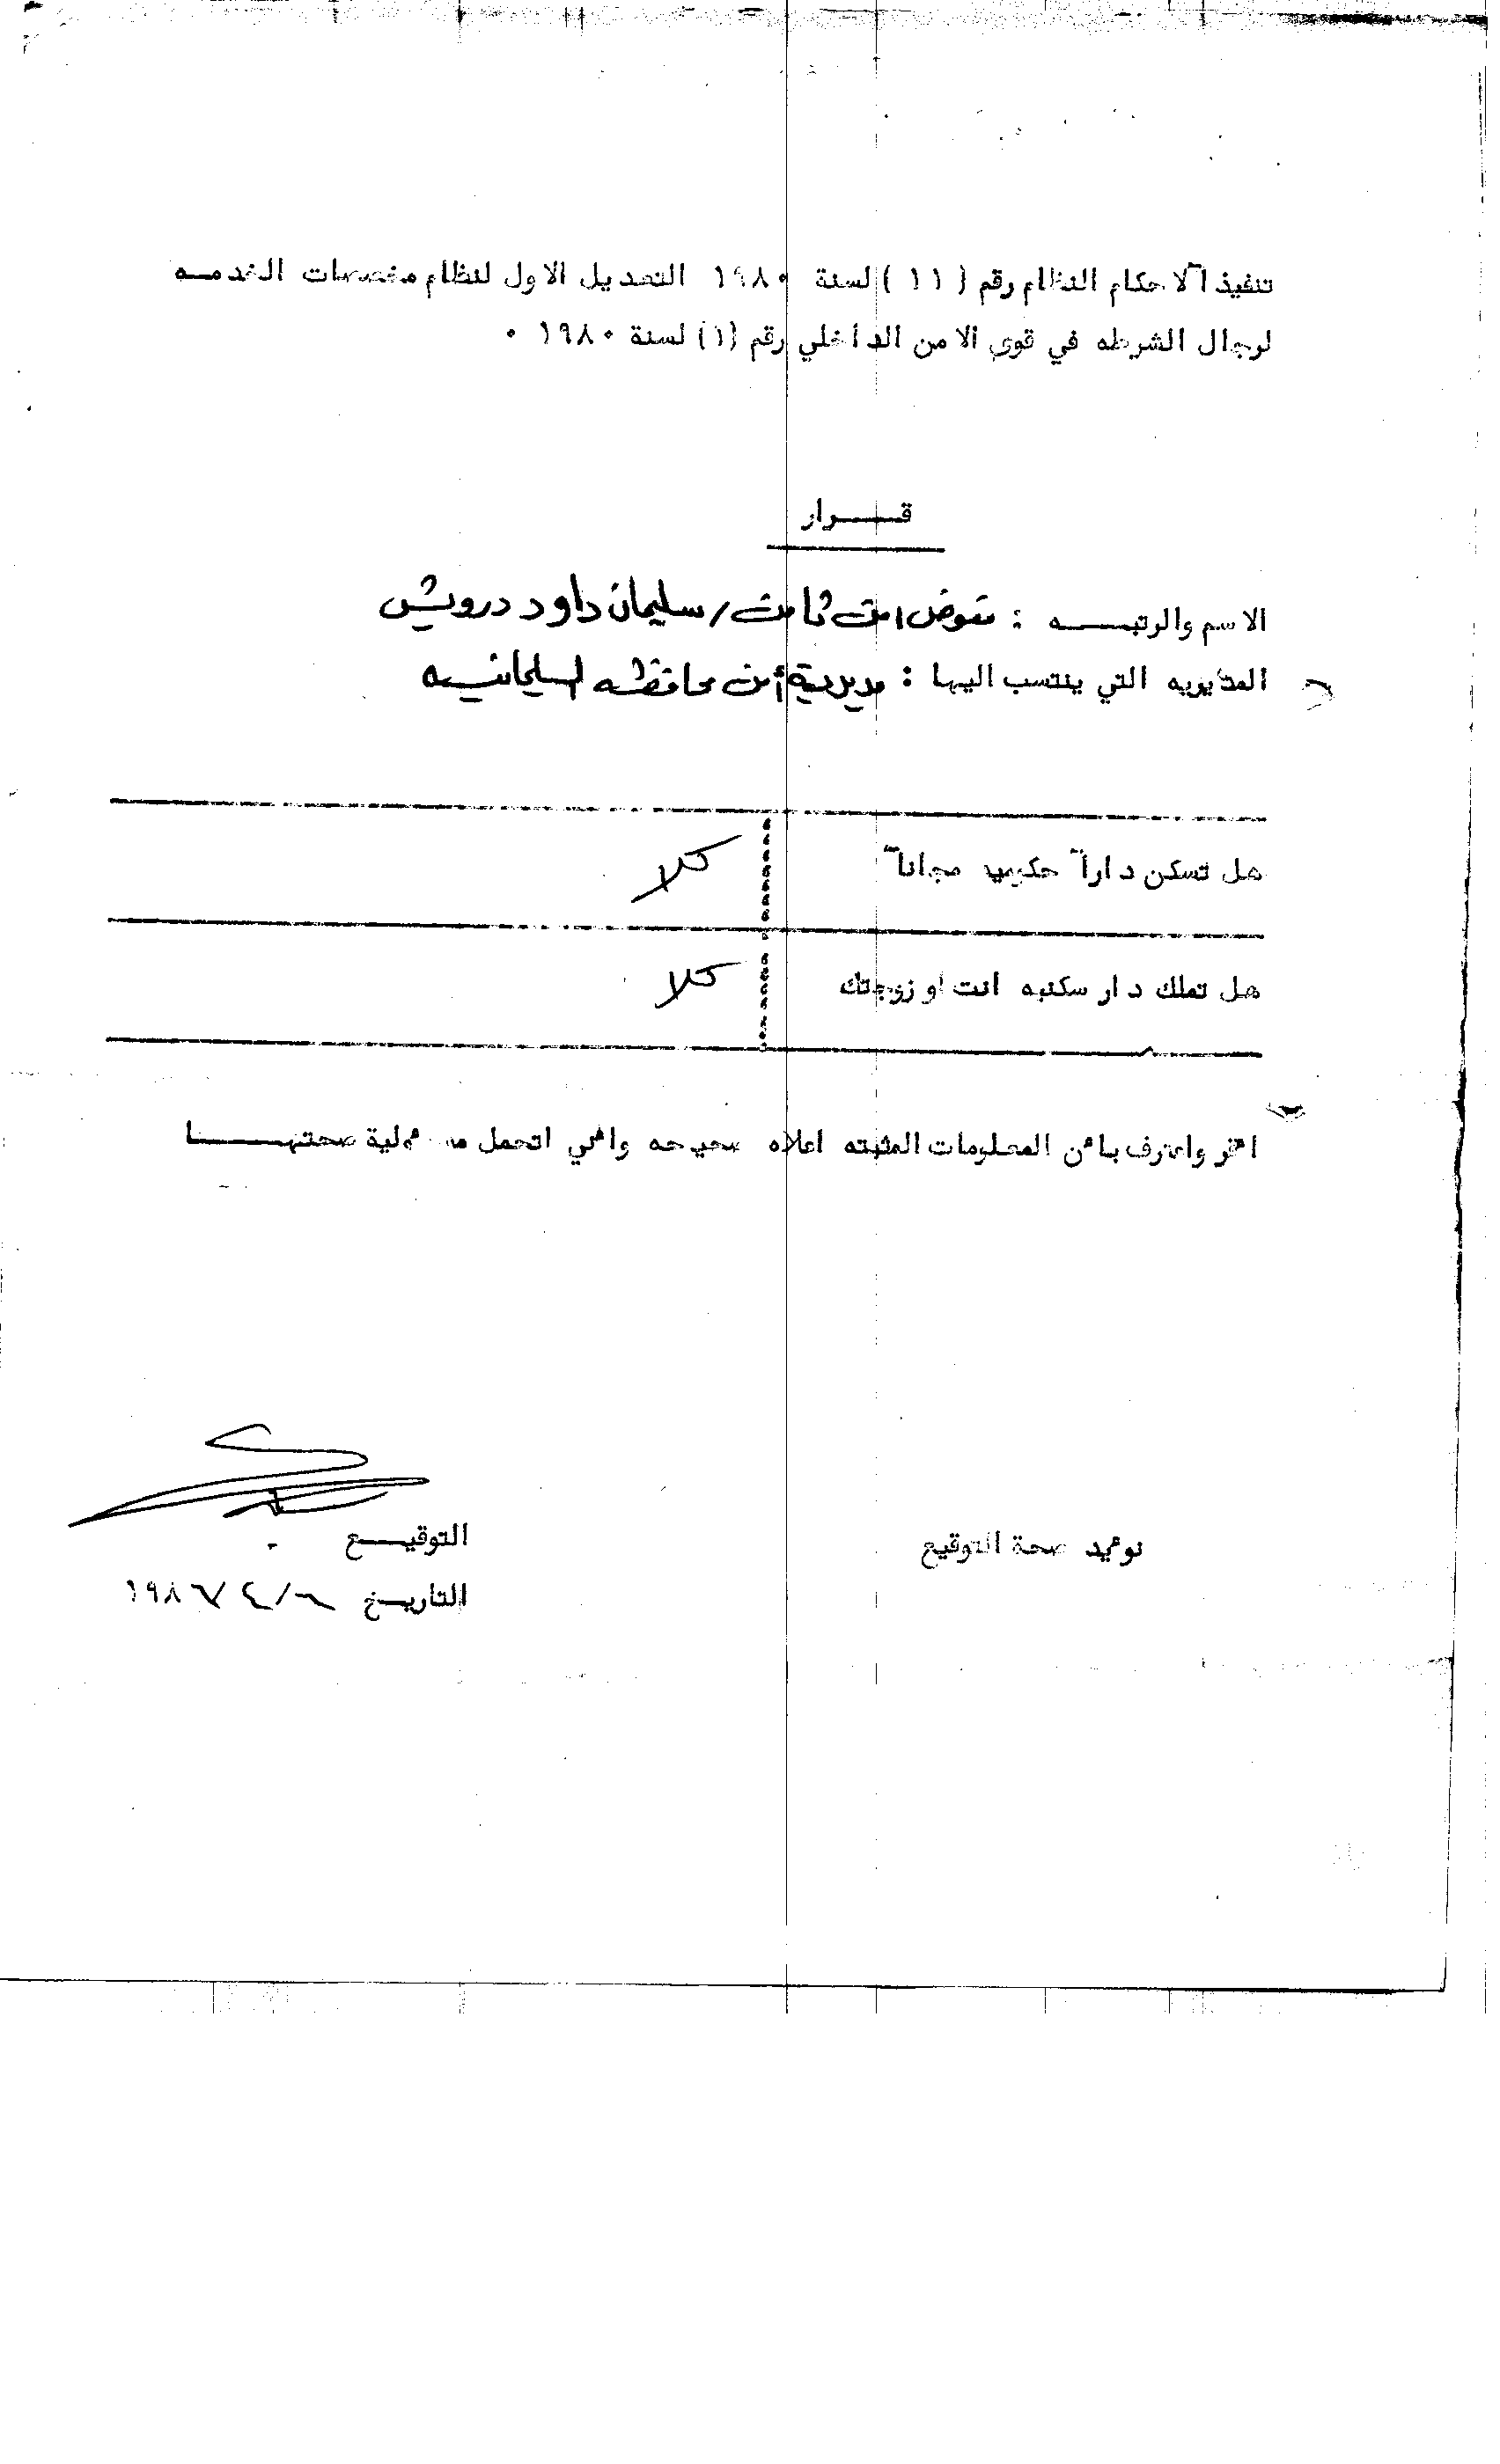 تنفيذاً لاحكام النظام رقم ( ١١ ) لسنة ١٩٨٠ التعديل الاول لنظام مخصصات الخدمــه
لرجال الشرطه في قوى الامن الداخلي رقم (١) لسنة ١٩٨٠ ٠
قـــرار
الاسم والرتبـــه : مفوض امن ثامن / سليمان داود درويش
المديريه التي ينتسب اليها : مديرية أمن محافظه السليمانيه
هل تسكن داراً حكوميه مجاناً
كلا
هل تملك دار سكنيه انت او زوجتك
كلا
اقر واعترف بائن المعلومات المثبته اعلاه صحيحه وائني اتحمل مسئولية صحتهــــا
نوئيد صحة التوقيع
التوقيـــع
التاريــخ / ٤ / ١٩٨